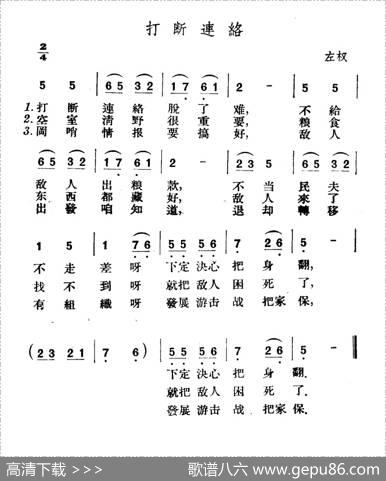 打断連絡
2/4
左权
5 5 | 65 32 | 17 61 | 2 - | 5 5
1. 打 断 連 絡 脫 了 难, 不 給
2. 空 室 清 野 很 重 要, 粮 食
3. 岡 哨 情 报 要 搞 好, 敌 人
65 35 | 32 17 | 61 2 - | 23 5 | 65 35
敌 人 出 粮 款, 不 当 民 夫
东 西 都 藏 好, 敌 人 來 了
出 發 咱 知 道, 退 却 轉 移
1 5 | 1 (76) | 55 55 | 7 (26) | 5 -
不 走 差 呀 下定 决心 把 身 翻,
找 不 到 呀 就把 敌人 困 死 了,
有 組 織 呀 發展 游击 战 把家 保,
(23 21 | 7 6) | 55 55 | 7 (26) | 5 -
下定 决心 把 身 翻.
就把 敌人 困 死 了.
發展 游击 战 把家 保.
高清下载 >>>
歌谱八六 www.gepu86.com